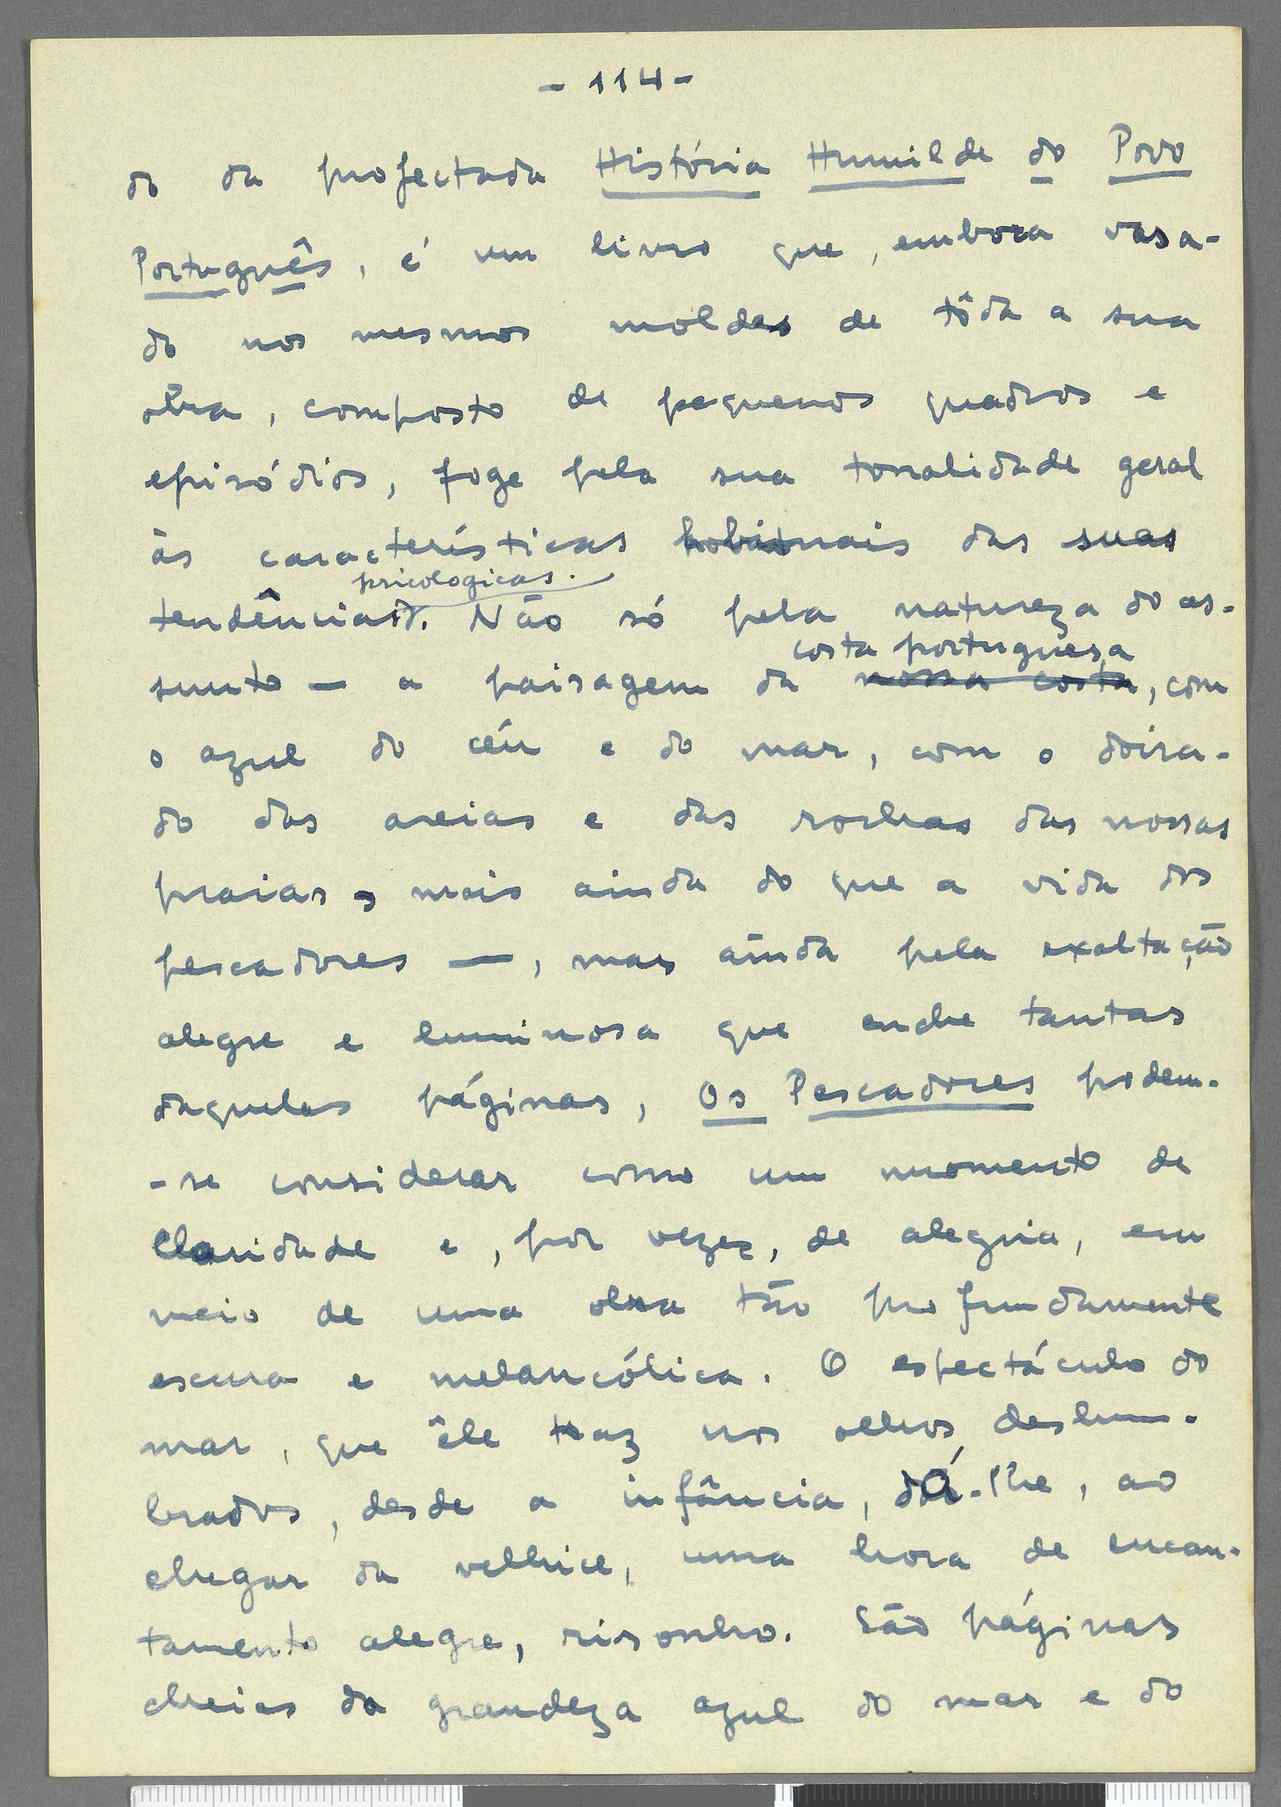 - 114 -
do da projectada História Humilde do Povo
Português, é um livro que, embora vasa-
do nos mesmos moldes de tôda a sua
obra, composto de pequenos quadros e
episódios, foge pela sua tonalidade geral
às características habituais das suas
psicologicas.
tendências. Não só pela natureza do as-
costa portuguesa
sunto — a paisagem da nossa costa, com
o azul do céu e do mar, com o doira-
do das areias e das rochas das nossas
praias, mais ainda do que a vida dos
pescadores —, mas ainda pela exaltação
alegre e luminosa que enche tantas
daquelas páginas, Os Pescadores podem-
-se considerar como um momento de
claridade e, por vezes, de alegria, em
meio de uma obra tão profundamente
escura e melancólica. O espectáculo do
mar, que êle traz nos olhos deslum-
brados, desde a infância, dá-lhe, ao
chegar da velhice, uma hora de encan-
tamento alegre, risonho. São páginas
cheias da grandeza azul do mar e do